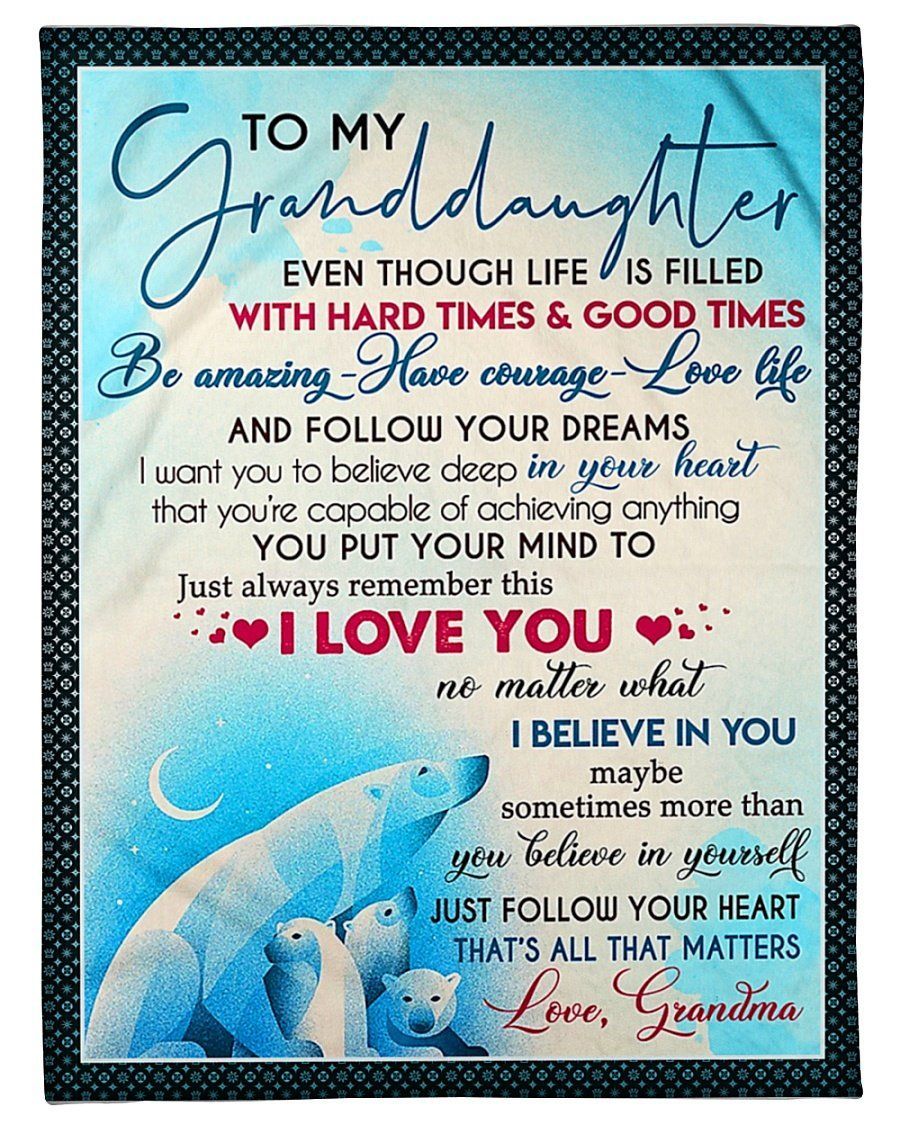 TO MY
Granddaughter
EVEN THOUGH LIFE IS FILLED
WITH HARD TIMES & GOOD TIMES
Be amazing - Have courage - Love life
AND FOLLOW YOUR DREAMS
I want you to believe deep in your heart
that you're capable of achieving anything
YOU PUT YOUR MIND TO
Just always remember this
I LOVE YOU
no matter what
I BELIEVE IN YOU
maybe
sometimes more than
you believe in yourself
JUST FOLLOW YOUR HEART
THAT'S ALL THAT MATTERS
Love, Grandma